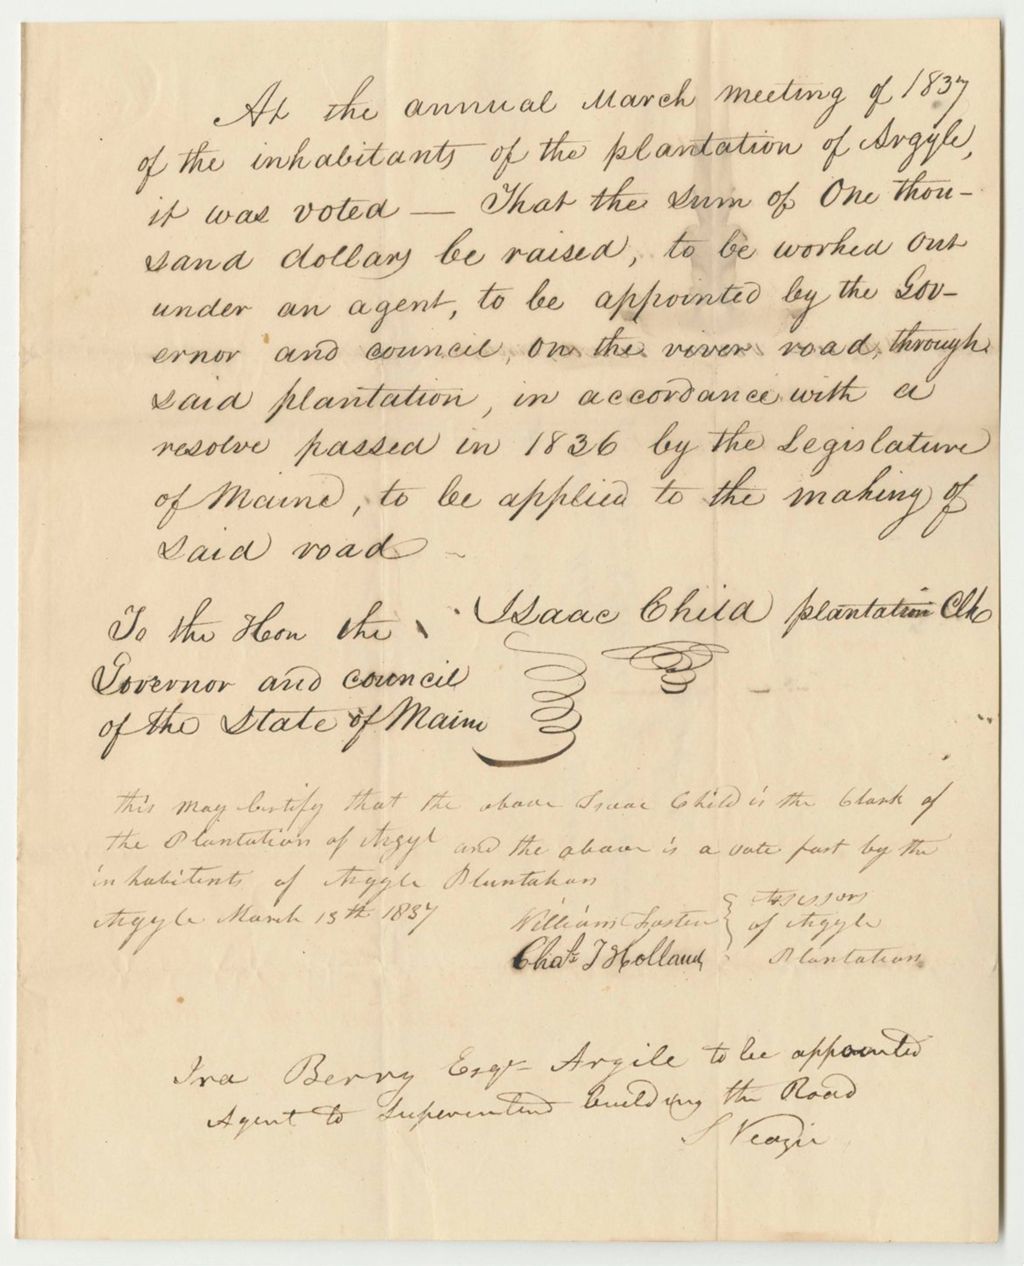 At the annual March meeting of 1837
of the inhabitants of the plantation of Argyle,
it was voted — That the sum of One thou-
sand dollars be raised, to be worked out
under an agent, to be appointed by the Gov-
ernor and council, on the river road, through
said plantation, in accordance with a
resolve passed in 1836 by the Legislature
of Maine, to be applied to the making of
said road
Isaac Child plantation Clk
To the Hon the
Governor and council
of the State of Maine
this may Certify that the above Isaac Child is the Clark of
the Plantation of Argyl and the above is a vote past by the
inhabitents of Argyle Plantation
Argyle March 13th 1837
William Foster } Assessors
Chas J Holland } of Argyle
Plantation
Ira Berry Esqr Argile to be appointed
Agent to Superintend building the Road
S Veazie